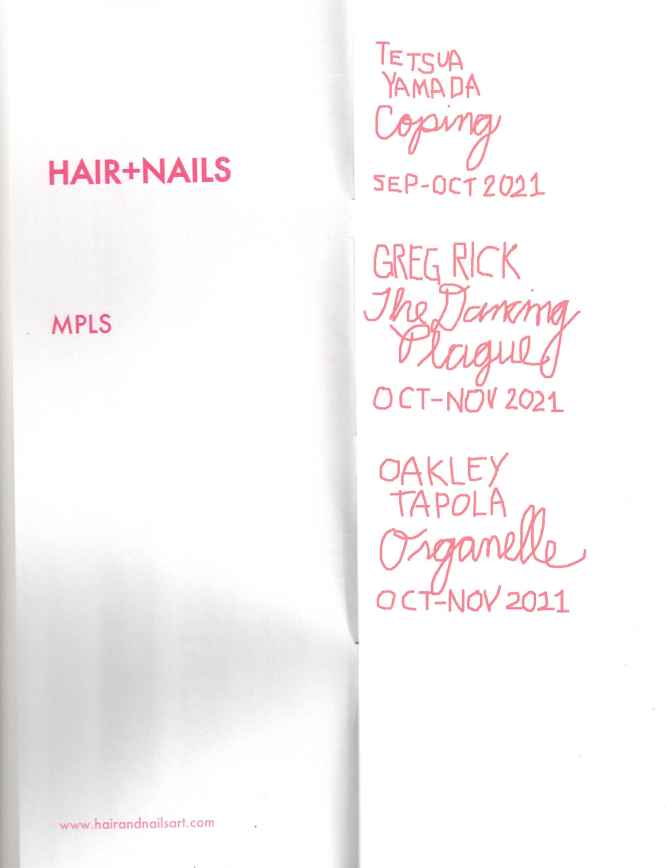 HAIR+NAILS
MPLS
www.hairandnailsart.com
TETSUA
YAMADA
Coping
SEP-OCT 2021
GREG RICK
The Dancing
Plague
OCT-NOV 2021
OAKLEY
TAPOLA
Organelle
OCT-NOV 2021